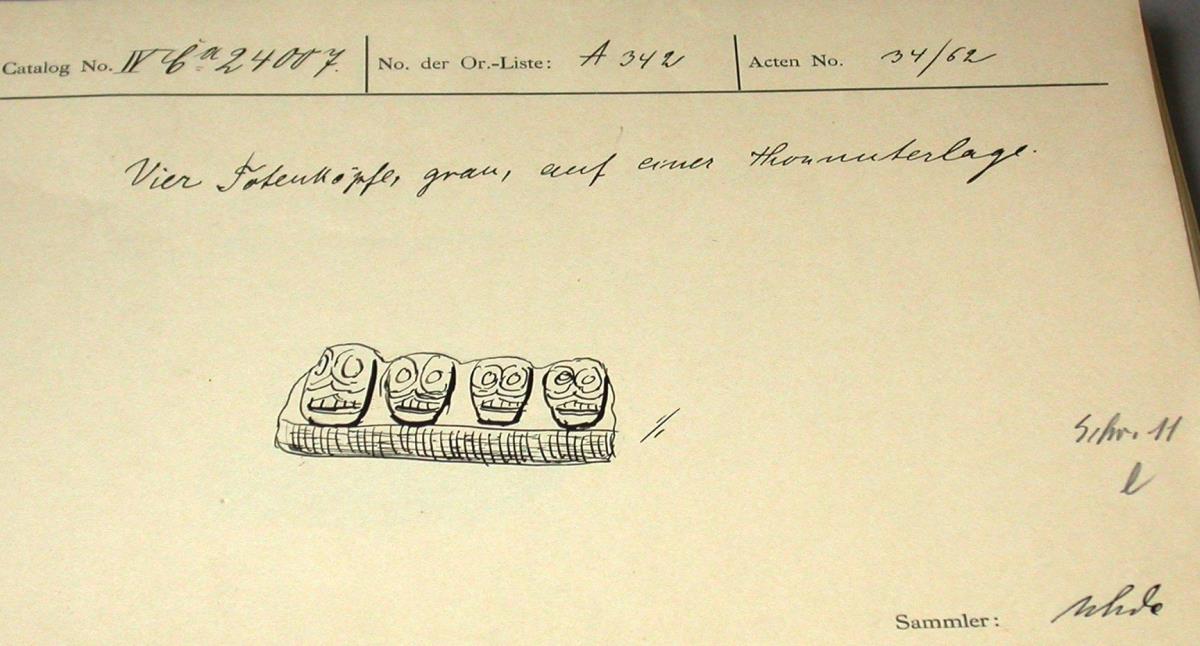 Catalog No. IV Ca 24007. No. der Or.-Liste: A 342 Acten No. 34/62
Vier Totenköpfe, grau, auf einer Thonunterlage.
1/1
Schr. 11
l
Sammler: Uhde